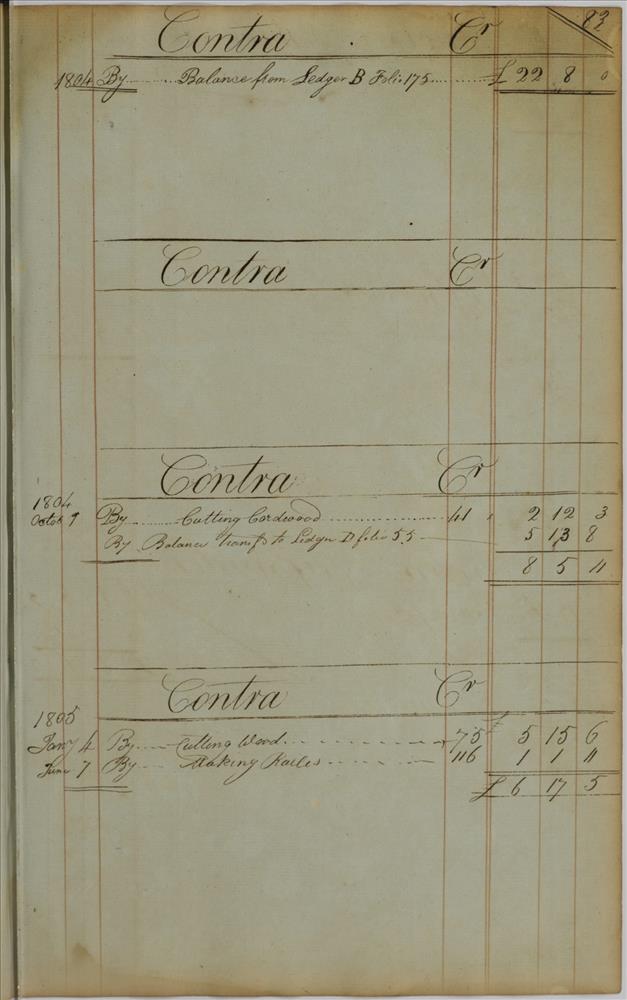 83
Contra Cr
1804 By Balance from Ledger B Folio 175 £ 22 8 0
Contra Cr
Contra Cr
1804
Octob 9 By Cutting Cordwood 41 2 12 3
By Balance transfd to Ledger D folio 55 5 13 8
8 5 11
Contra Cr
1805
Jany 4 By Cutting Wood 75 £ 5 15 6
June 7 By Making Railes 116 1 1 11
£ 6 17 5